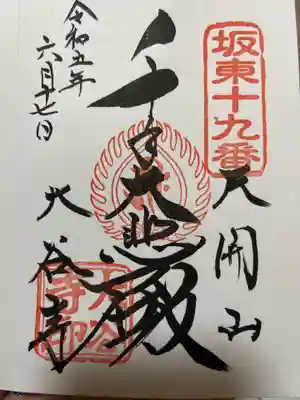 坂東十九番
天開山
千手大悲殿
大谷寺
大谷寺印
令和五年
六月十七日